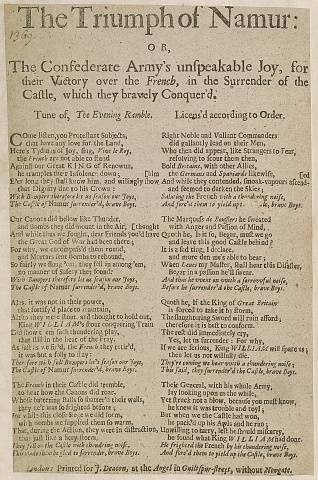 1369.
The Triumph of Namur:
OR,
The Confederate Army's unspeakable Joy, for
their Victory over the French, in the Surrender of the
Castle, which they bravely Conquer'd.
Tune of, The Evening Ramble.
Licens'd according to Order.
Come listen, you Protestant Subjects,
that have any love for the Land,
Here's Tydings of Joy, sing, Vive le Roy,
the French are not able to stand
Against our Great KING of Renown,
he tramples their Insolence down;
long they shall know him, and willingly show
that Dignity due to his Crown:
With Bumpers therefore let us season our Joys,
The Castle of Namur surrender'd, brave Boys.
Our Canons did bellow like Thunder,
and Bombs they did mount in the Air,
And while thus we fought, dear friends you'd have thought
the Great God of War had been there;
For why, we encompass'd them round,
and Mortars sent Bombs to rebound,
So fairly we flung 'em, they fell in among 'em,
no manner of Safety they found:
With Bumpers therefore let us season our Joys,
The Castle of Namur surrender'd, brave Boys.
Alas, it was not in their power,
that fortify'd place to maintain,
Altho they were stout, and thought to hold out,
King WILLIAM's stout conquering Train
Did shew 'em such thundring play,
that still in the heat of the Fray,
As fast as we fir'd, the French they retir'd,
it was but a folly to stay:
The Castle of Namur surrender'd, brave Boys.
The French in their Castle did tremble,
to hear how the Canons did roar,
While battering Balls so shatter'd their walls,
they ne'er was so frighted before;
For while this close Siege we did form,
with Bombs we supplied them so warm,
That, during the Action, they were in distraction,
that just like a fiery storm,
They fell on the Castle with thundring noise,
Right Noble and Valiant Commanders
did gallantly lead on their Men,
Who then did appear, like Strangers to Fear,
resolving to scour them then,
Bold Bravarr, with other Allies,
the Germans and Spaniards likewise,
And while they contended, smoak-vapours ascended
and seemed to darken the Skies;
Saluting the French with a thundering noise,
And forc'd them to yield up brave Boys.
The Marquess de Bouflers he sweated
with Anger and Passion of Mind,
Quoth he, Is it so, Begar, must we go
and leave this good Castle behind?
It is a sad thing, I declare,
and more dan me's able to bear;
When Loues my Master, shall hear this Disaster,
Begar in a passion he'll swear.
And that he went on with a sorrowful noise,
Before he surrender'd the Castle, brave Boys.
Quoth he, If the King of Great Britain
is forced to take it by storm,
The slaughtering Sword will ruin afford;
therefore it is best to conform.
The rest did immediately cry,
Yes, let us surrender: For why,
If we are furious, King WILLIAM will spare us;
then let us not wilfully die.
This said, they surrender'd the Castle, brave Boys.
Their General, with his whole Army,
lay looking upon us the while,
Yet struck not a blow, because you must know,
he knew it was trouble and toyl;
But when we the Castle had won,
he pack'd up his Awls and he run;
Unwilling to tarry, lest he should miscarry,
he found what King WILLIAM had done.
He frighted the French by his thundring noise,
And forc'd them to yield up the Castle, brave Boys.
London: Printed for J. Deacon, at the Angel in Guiltspur-street, without Newgate.